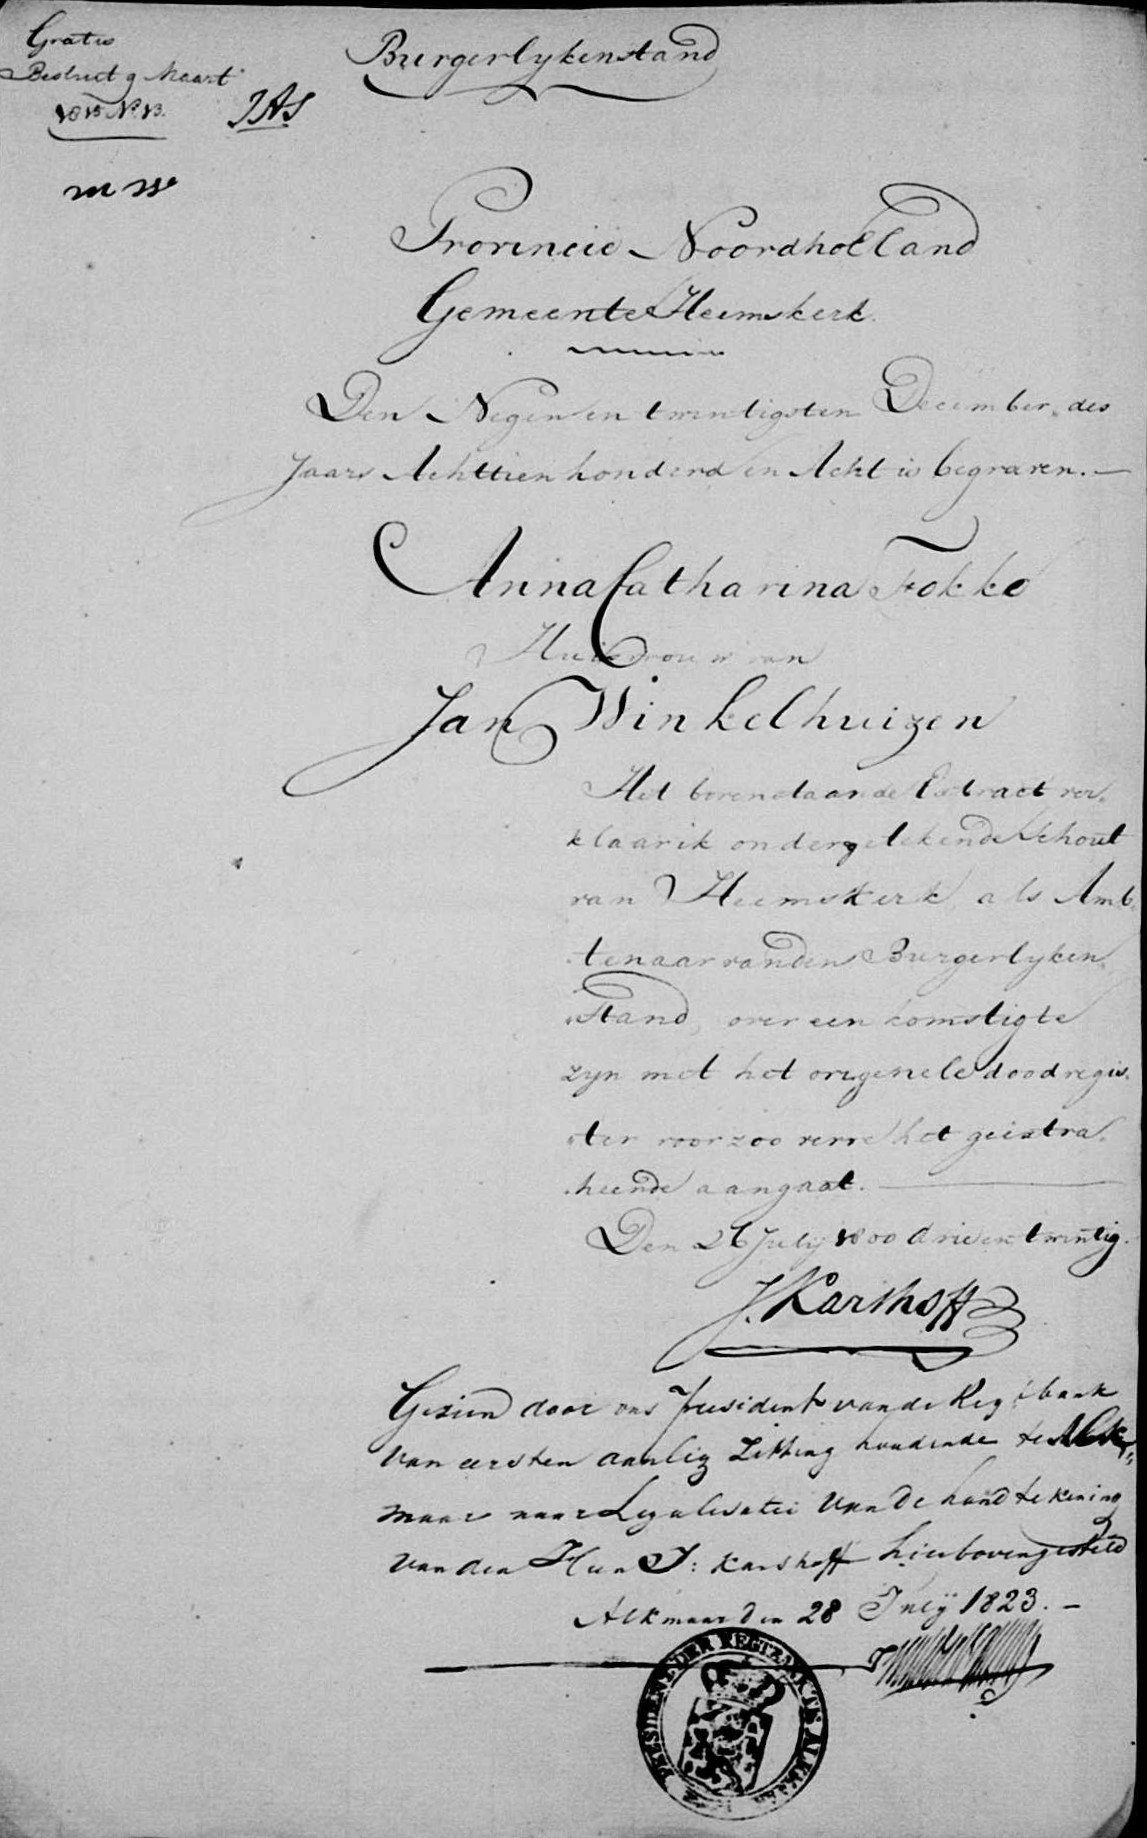 Gratis
Besluit 9 Maart
1815 No 13.
JAS
Burgerlykenstand
Provincie Noordholland
Gemeente Heemskerk.
Den Negen en twintigsten December des
Jaars Achttien honderd en Acht is begraven.
Anna Catharina Fokke
Huisvrouw van
Jan Winkelhuizen
Het bovenstaande Extract ver-
klaar ik ondergetekende Schout
van Heemskerk, als Amb-
tenaar van den Burgerlyken
Stand, over een komstigte
zyn met het origenele dood regis-
ter voor zoo verre het geextra-
heende aangaat.
Den 26 July 1800 drie en twintig.
J. Karshoff
Gezien door ons President van de Regtbank
van eersten aanleg Zitting houdende te Alk-
maar voor Legalisatie van de handtekening
van den Heer J: Karshoff hierboven gesteld
Alkmaar den 28 July 1823.
PRESIDENT DER REGTBANK TE ALKMAAR